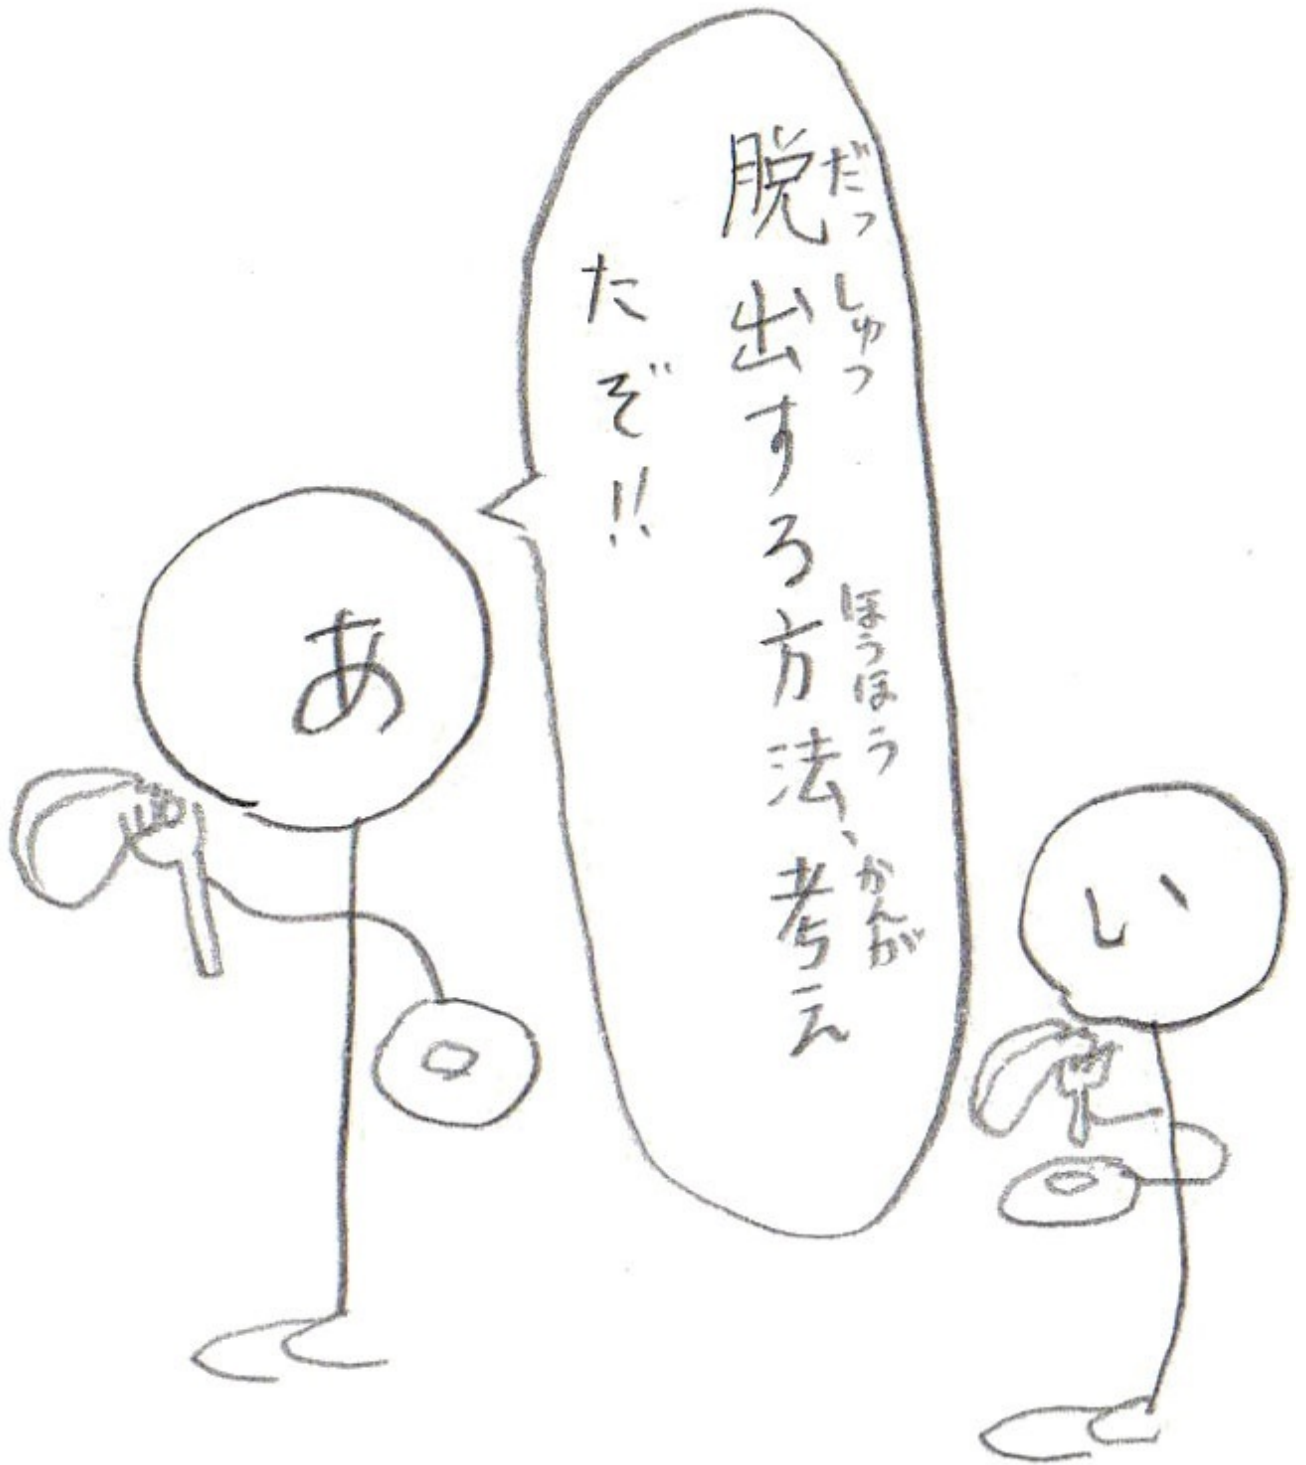 脱出する方法、考え
たぞ!!
だっしゅつ
ほうほう
かんが
あ
い